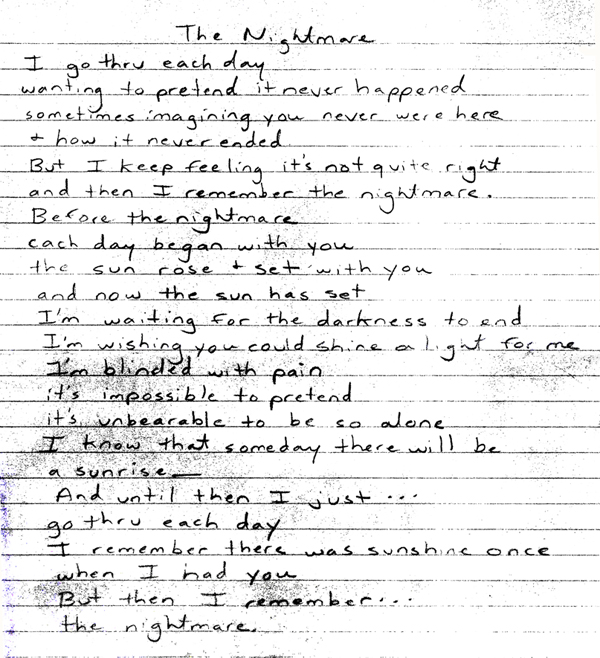 The Nightmare
I go thru each day
wanting to pretend it never happened
sometimes imagining you never were here
+ how it never ended
But I keep feeling it's not quite right
and then I remember the nightmare.
Before the nightmare
each day began with you
the sun rose + set with you
and now the sun has set
I'm waiting for the darkness to end
I'm wishing you could shine a light for me
I'm blinded with pain
it's impossible to pretend
it's unbearable to be so alone
I know that someday there will be
a sunrise—
And until then I just ...
go thru each day
I remember there was sunshine once
when I had you
But then I remember...
the nightmare.